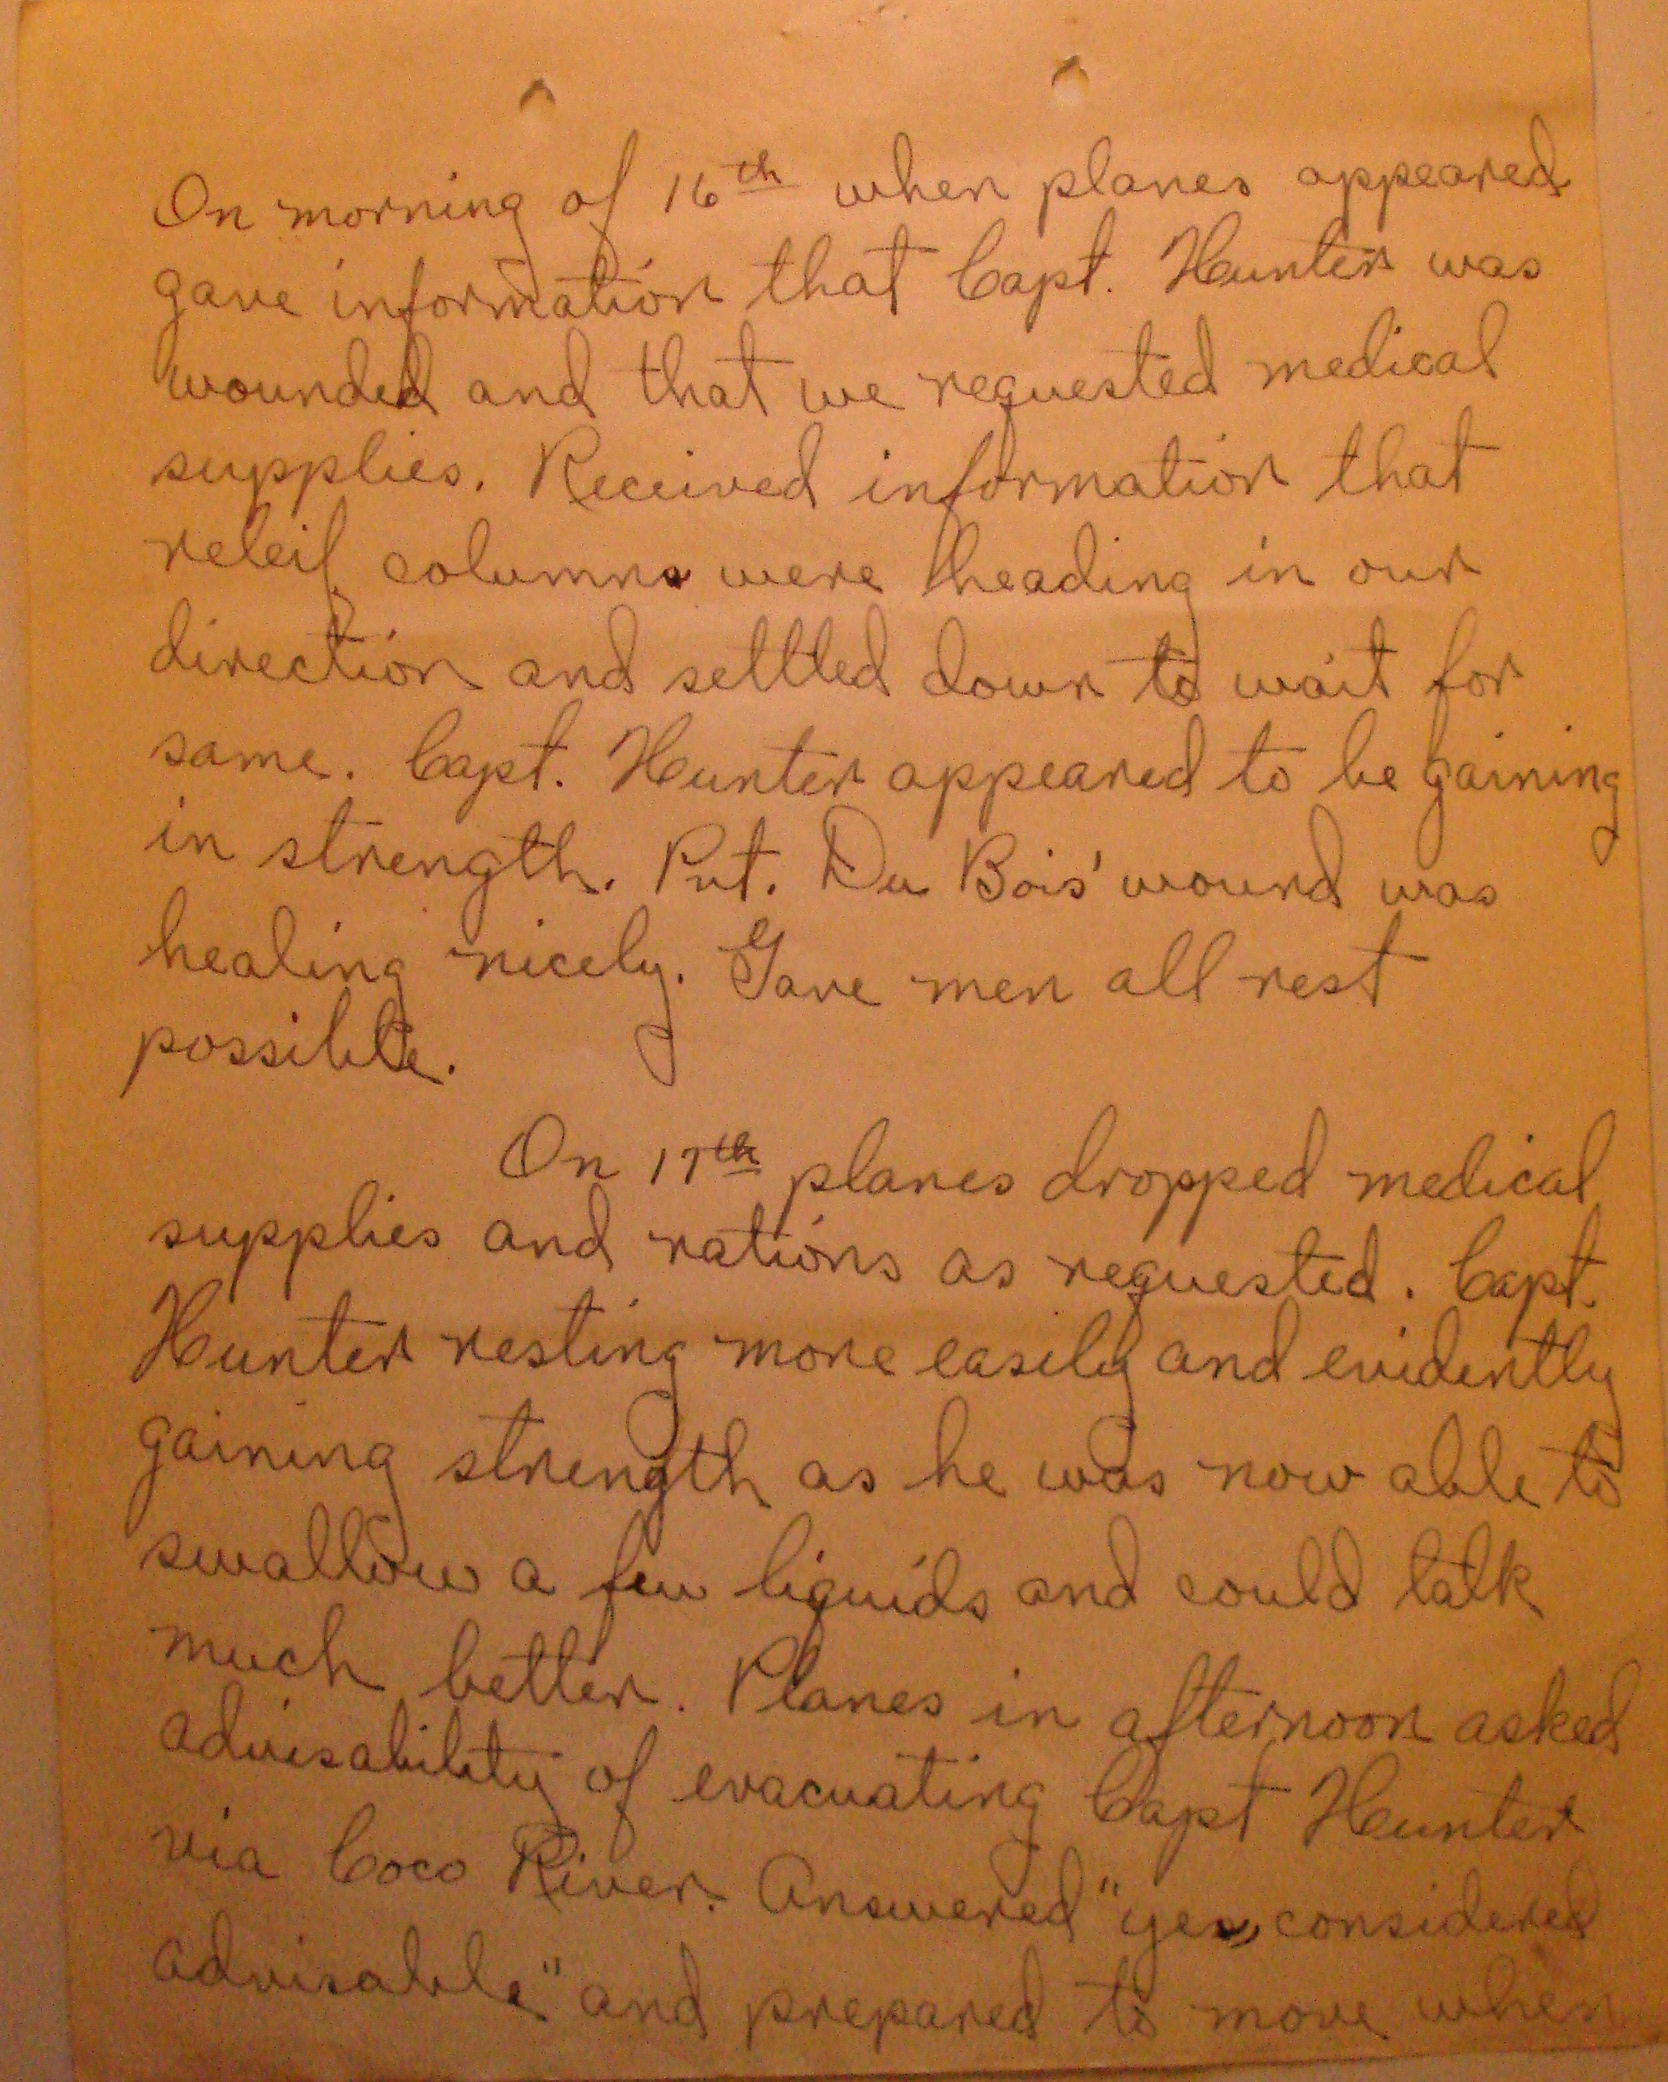 On morning of 16th when planes appeared
gave information that Capt. Hunter was
wounded and that we requested medical
supplies. Received information that
releif columns were heading in our
direction and settled down to wait for
same. Capt. Hunter appeared to be gaining
in strength. Pvt. Du Bois' wound was
healing nicely. Gave men all rest
possible.
On 17th planes dropped medical
supplies and rations as requested. Capt.
Hunter resting more easily and evidently
gaining strength as he was now able to
swallow a few liquids and could talk
much better. Planes in afternoon asked
advisability of evacuating Capt Hunter
via Coco River. Answered "yes, considered
advisable" and prepared to move when